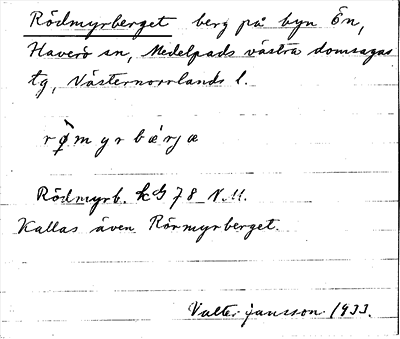 Rödmyrberget berg på byn Ön,
Haverö sn, Medelpads västra domsagas
tg, Västernorrlands l.
rø̀myrbárjæ
Rödmyrb. kG 78 N.11.
Kallas även Rörmyrberget.
Valter Jansson 1933.